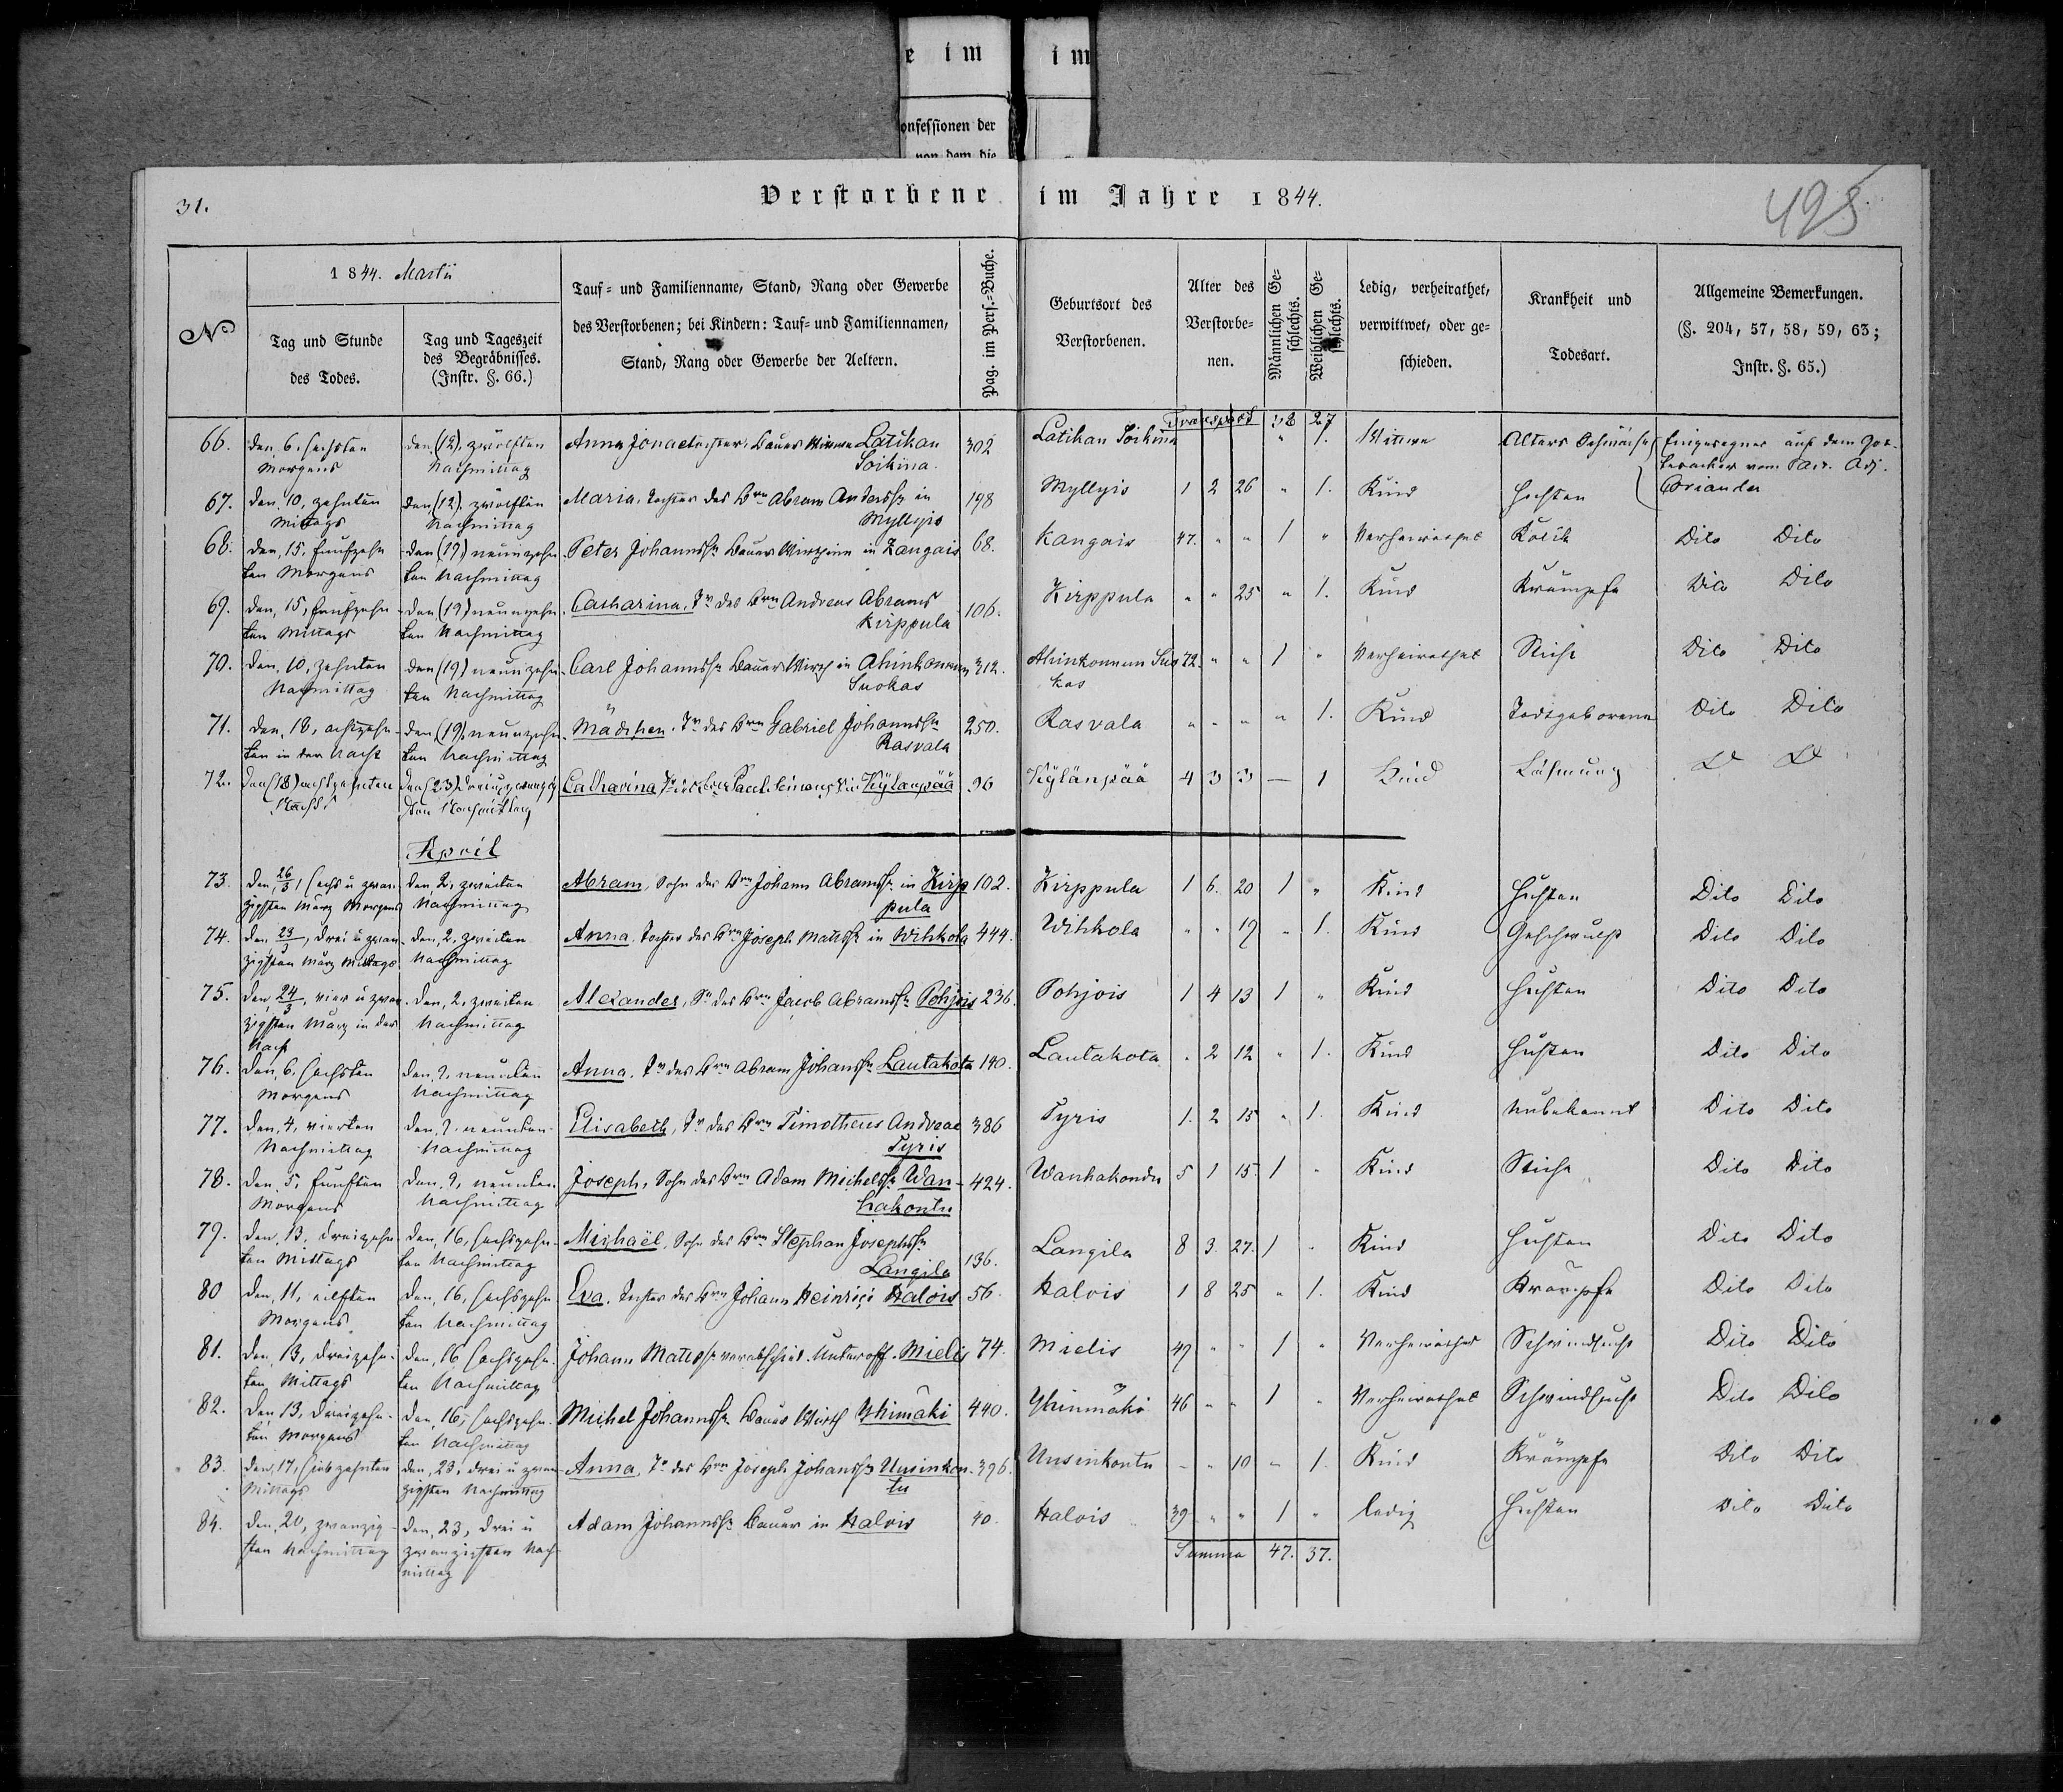 e im im
onfessionen der
von dem die
31. Verstorbene im Jahre 1844. 495
No
1844. Martii
Tag und Stunde
des Todes.
Tag und Tageszeit
des Begräbnisses.
(Instr. §. 66.)
Tauf= und Familienname, Stand, Rang oder Gewerbe
des Verstorbenen; bei Kindern: Tauf= und Familiennamen,
Stand, Rang oder Gewerbe der Aeltern.
Pag. im Pers.=Buche.
Geburtsort des
Verstorbenen.
Alter des
Verstorbe=
nen.
Männlichen Ge=
schlechts.
Weiblichen Ge=
schlechts.
Ledig, verheirathet,
verwittwet, oder ge=
schieden.
Krankheit und
Todesart.
Allgemeine Bemerkungen.
(§. 204, 57, 58, 59, 63;
Instr. §. 65.)
Transport 38 27
66. den 6. sechsten den (12). zwölften Anna Jonaetochter, Bauer Wittwe Latikan 302 Latikan Soikina " 1. Wittwe Alters Schwäche Eingesegnet auf dem Got-
Morgens Nachmittag Soikina. tesacker vom Past. Adj.
67. den 10, zehnten den (12). zwölften Maria, Tochter des Brn Abram Anderssn in 198 Myllyis 1 2 26 " 1. Kind Husten Coriander
Mittags Nachmittag Myllyis
68. den, 15, funfzehn- den (19) neunzehn- Peter Johannssn Bauer Wirth in Kangais 68. Kangais 47. " " 1 " Verheirathet Kolik Dito Dito
ten Morgens ten Nachmittag
69. den, 15, funfzehn- den (19) neunzehn- Catharina, Tr des Brn Andreas Abrams 106. Kirppula " " 25 " 1. Kind Krämpfe Dito Dito
ten Mittags ten Nachmittag Kirppula
70. den, 10, zehnten den (19) neunzehn- Carl Johannssn Bauer Wirth in Ahinkonnun 312. Ahinkonnun Suo 72. " " 1 " Verheirathet Stiche Dito Dito
Nachmittag ten Nachmittag Suokas kas
71. den, 18, achtzehn- den (19), neunzehn- Mädchen, Tr des Brn Gabriel Johannssn 250. Rasvala " " " " 1. Kind Todtgeborene Dito Dito
ten in der Nacht ten Nachmittag Rasvala
72. den (18) achtzehnten den (23) dreiundzwanzig Catharina Tr des Brn Paul Simons in Kylänpää 96 Kylänpää 4 3 3 — 1 Kind Lähmung D D
Nachts sten Nachmittag
April
73. den 26/3, sechs u zwan- den, 2, zweiten Abram, Sohn des Brn Johann Abramssn in Kirp 102. Kirppula 1 6. 20 1 " Kind Husten Dito Dito
zigsten März Morgens Nachmittag pula
74. den 23/3, drei u zwan- den, 2, zweiten Anna, Tochter des Brn Joseph Matssn in Wihkola 444. Wihkola " " 19 " 1. Kind Geschwulst Dito Dito
zigsten März Mittags Nachmittag
75. den 24/3, vier u zwan- den, 2, zweiten Alexander, Sn des Brn Jacob Abramssn Pohjois 236. Pohjois 1 4 13 1 " Kind Husten Dito Dito
zigsten März in der Nachmittag
Nacht
76. den, 6, sechsten den, 9, neunten Anna, Tr des Brn Abram Johanssn Lautakota 140. Lautakota . 2 12 " 1. Kind Husten Dito Dito
Morgens Nachmittag
77. den, 4, vierten den, 9, neunten Elisabeth, Tr des Brn Timotheus Andreae 386 Tyris 1. 2 15 " 1. Kind unbekannt Dito Dito
Nachmittag Nachmittag Tyris
78. den, 5, funften den, 9, neunten Joseph, Sohn des Brn Adam Michelssn Wan- 424. Wanhakondu 5 1 15 1 " Kind Stiche Dito Dito
Morgens Nachmittag hakontu
79. den, 13, dreizehn- den, 16, sechszehn- Michaël, Sohn des Brn Stephan Josephssn 136. Langila 8 3. 27. 1 " Kind Husten Dito Dito
ten Mittags ten Nachmittag Langila
80 den, 11, eilften den, 16, sechszehn- Eva, Tochter des Brn Johann Heinrici Halois 56. Halois 1 8 25 " 1. Kind Krämpfe Dito Dito
Morgens ten Nachmittag
81. den, 13, dreizehn- den, 16 sechszehn- Johann Matssn verabschied. Unteroff. Mielis 74. Mielis 49 " " 1 " Verheirathet Schwindsucht Dito Dito
ten Mittags ten Nachmittag
82. den, 13, dreizehn- den, 16, sechszehn- Michel Johannssn Bauer Wirth Yhimäki 440. Yhinmäki 46 " " 1 " Verheirathet Schwindsucht Dito Dito
ten Morgens ten Nachmittag
83. den, 17, siebzehnten den, 23, drei u zwan- Anna, Tr des Brn Joseph Johanssn Uusinkon- 396. Uusinkontu - " 10 " 1. Kind Krämpfe Dito Dito
Mittags zigsten Nachmittag tu
84. den, 20, zwanzig- den, 23, drei u Adam Johannssn Bauer in Halois 40. Halois 39 " " 1 " ledig Husten Dito Dito
sten Nachmittag zwanzigsten Nach-
mittag
Summa 47. 37.